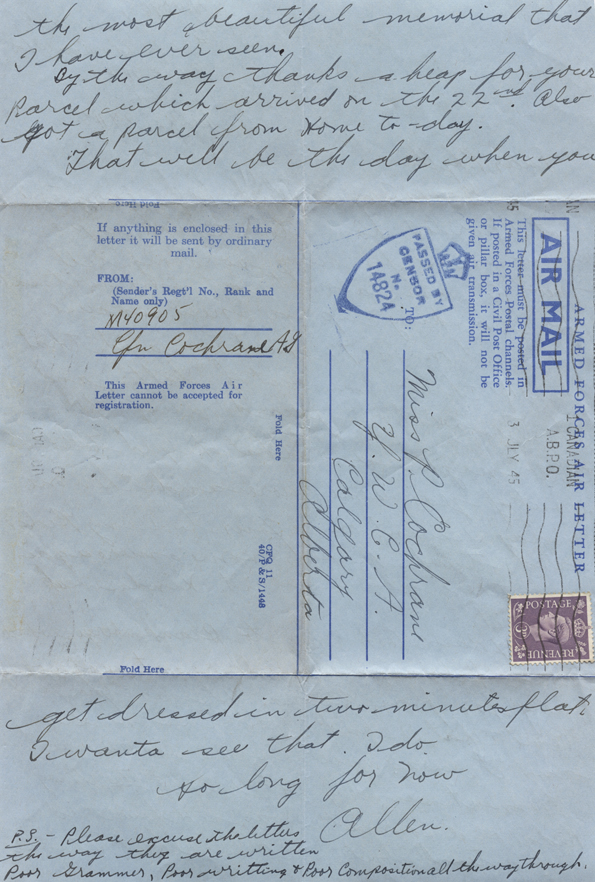 the most beautiful memorial that
I have ever seen.
By the way thanks a heap for your
parcel which arrived on the 22nd. Also
got a parcel from Home to-day.
That will be the day when you
Fold Here
If anything is enclosed in this
letter it will be sent by ordinary
mail.
FROM:
(Sender's Regt'l No., Rank and
Name only)
M40905
Cfn Cochrane AG
This Armed Forces Air
Letter cannot be accepted for
registration.
Fold Here
CPQ 11
40/P & S/1448
Fold Here
ARMED FORCES AIR LETTER
AIR MAIL
This letter must be posted in
Armed Forces Postal channels.
If posted in a Civil Post Office
or pillar box, it will not be
given air transmission.
PASSED BY
CENSOR
No.
14824
CANADIAN
A.B.P.O.
3 JLY 45
POSTAGE
REVENUE
TO:
Miss P. Cochrane
Y. W. C. A.
Calgary
Alberta
get dressed in two minutes flat.
I wanta see that. I do.
So long for now
Allen.
P.S. - Please excuse the letters
the way they are written
Poor Grammer, Poor writting & Poor Composition all the way through.